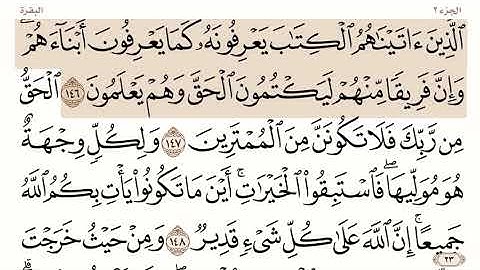 الجزء ٢ البقرة
الَّذِينَ ءَاتَيْنَاهُمُ الْكِتَابَ يَعْرِفُونَهُ كَمَا يَعْرِفُونَ أَبْنَاءَهُمْ
وَإِنَّ فَرِيقًا مِّنْهُمْ لَيَكْتُمُونَ الْحَقَّ وَهُمْ يَعْلَمُونَ ١٤٦ الْحَقُّ
مِن رَّبِّكَ فَلَا تَكُونَنَّ مِنَ الْمُمْتَرِينَ ١٤٧ وَلِكُلٍّ وِجْهَةٌ
هُوَ مُوَلِّيهَا فَاسْتَبِقُوا الْخَيْرَاتِ أَيْنَ مَا تَكُونُوا يَأْتِ بِكُمُ اللَّهُ
جَمِيعًا إِنَّ اللَّهَ عَلَىٰ كُلِّ شَيْءٍ قَدِيرٌ ١٤٨ وَمِنْ حَيْثُ خَرَجْتَ
٢٣